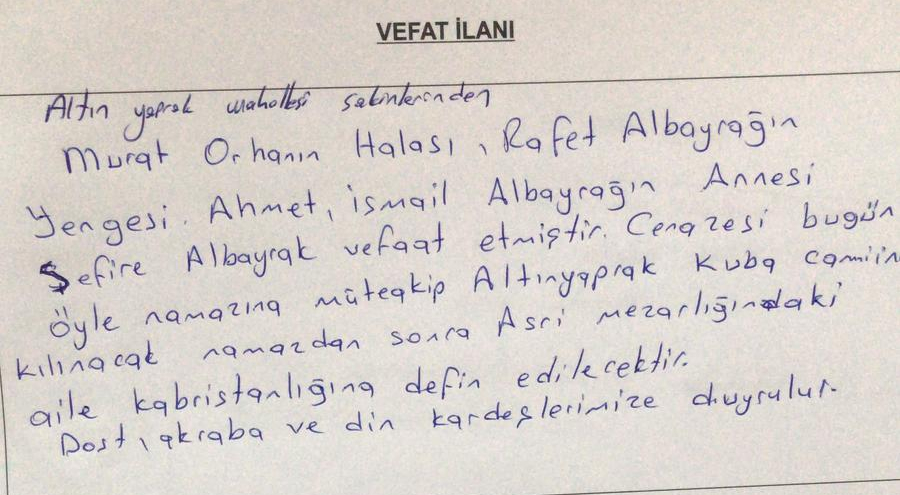 VEFAT İLANI
Altın yaprak mahallesi sakinlerinden
Murat Orhanın Halası, Rafet Albayrağın
Yengesi. Ahmet, ismail Albayrağın Annesi
Sefire Albayrak vefaat etmiştir. Cenazesi bugün
öyle namazına müteakip Altınyaprak Kuba camiin
kılınacak namazdan sonra Asri mezarlığındaki
aile kabristanlığına defin edilecektir.
Dost, akraba ve din kardeşlerimize duyrulur.